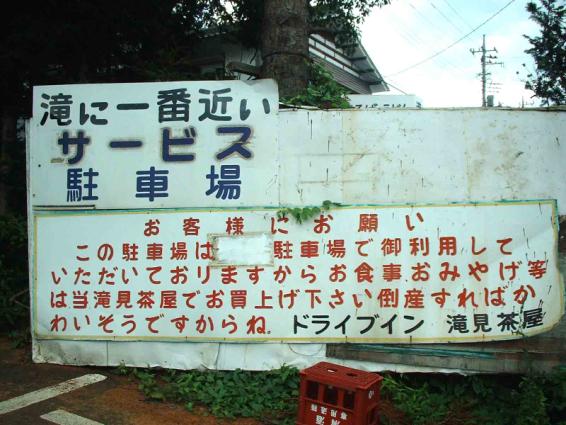 滝に一番近い
サービス
駐車場
お客様にお願い
この駐車場は 駐車場で御利用して
いただいておりますからお食事おみやげ等
は当滝見茶屋でお買上げ下さい倒産すればか
わいそうですからね。ドライブイン 滝見茶屋